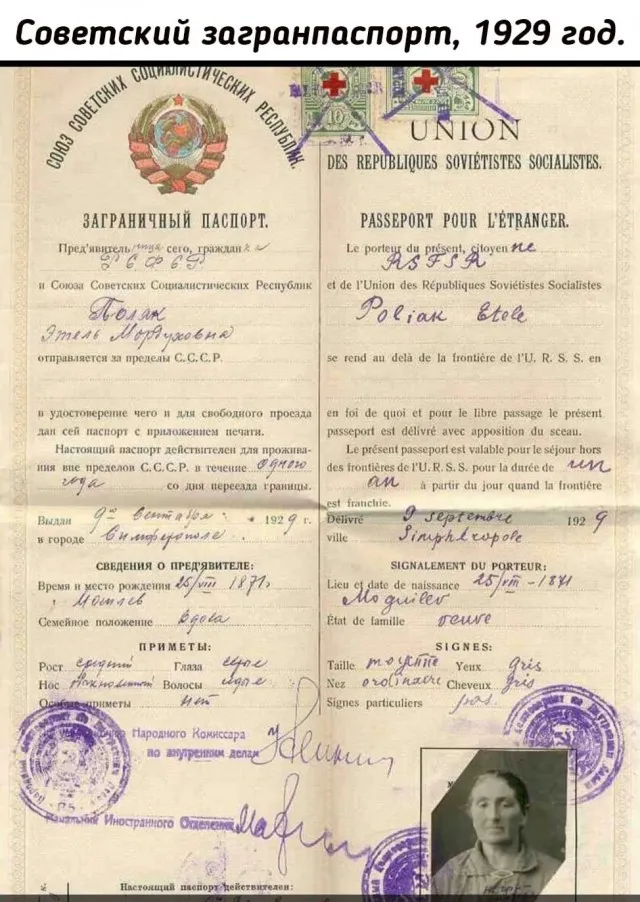 Советский загранпаспорт, 1929 год.
СОЮЗ СОВЕТСКИХ СОЦИАЛИСТИЧЕСКИХ РЕСПУБЛИК.
10
ЗАГРАНИЧНЫЙ ПАСПОРТ.
Пред'явитель сего, граждан
РСФСР
и Союза Советских Социалистических Республик
Поляк
Этель Мордуховна
отправляется за пределы С.С.С.Р.
в удостоверение чего и для свободного проезда
дан сей паспорт с приложением печати.
Настоящий паспорт действителен для прожива-
ния вне пределов С.С.С.Р. в течение одного
года со дня переезда границы.
Выдан 9го сентября 1929 г.
в городе Симферополе.
СВЕДЕНИЯ О ПРЕД'ЯВИТЕЛЕ:
Время и место рождения 25/VIII 1871г
Могилев
Семейное положение вдова
ПРИМЕТЫ:
Рост средний Глаза серые
Нос Волосы седые
Особые приметы нет
Народного Комиссара
по внутренним делам
Начальник Иностранного Отделения
Настоящий паспорт действителен:
UNION
DES REPUBLIQUES SOVIÉTISTES SOCIALISTES.
PASSEPORT POUR L'ÉTRANGER.
Le porteur du présent, citoyenne
RSFSR
et de l'Union des Républiques Soviétistes Socialistes
Poliak Etele
se rend au delà de la frontière de l'U. R. S. S. en
en foi de quoi et pour le libre passage le présent
passeport est délivré avec apposition du sceau.
Le présent passeport est valable pour le séjour hors
des frontières de l'U. R. S. S. pour la durée de un
an à partir du jour quand la frontière
est franchie.
Délivré 9 septembre 1929
ville Simphéropole
SIGNALEMENT DU PORTEUR:
Lieu et date de naissance 25/VIII-1871
Moguilev
État de famille veuve
SIGNES:
Taille moyenne Yeux gris
Nez ordinaire Cheveux gris
Signes particuliers pas.